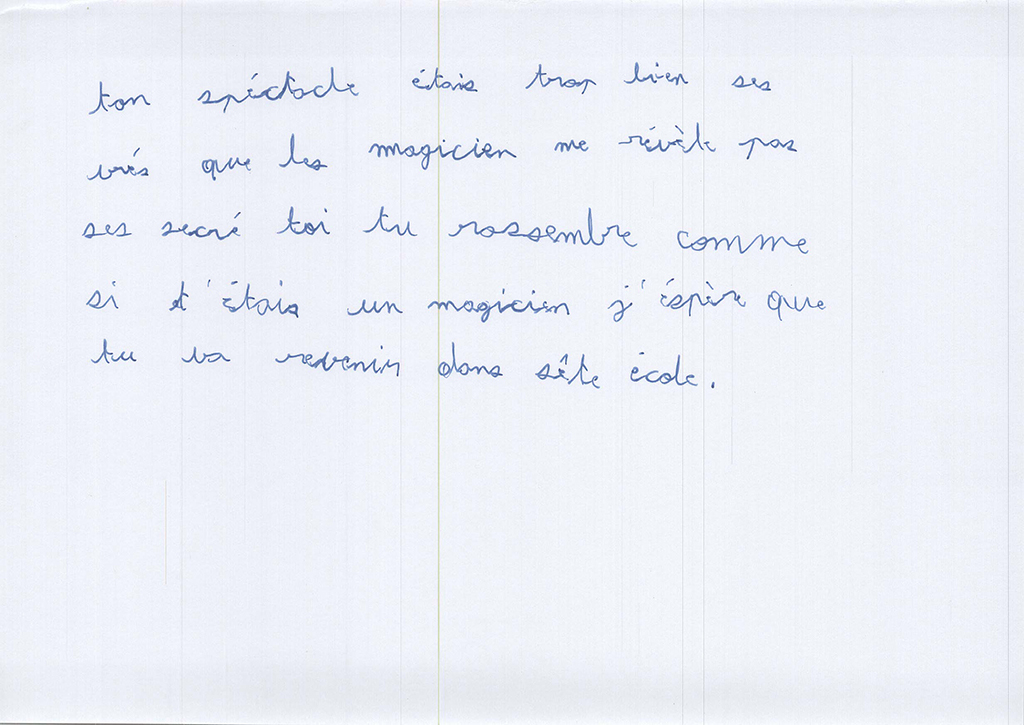 ton spéctacle étais trop bien ses
vrés que les magicien me révèle pas
ses secré toi tu rassemble comme
si t'étais un magicien j'éspère que
tu va revenir dans sète école.